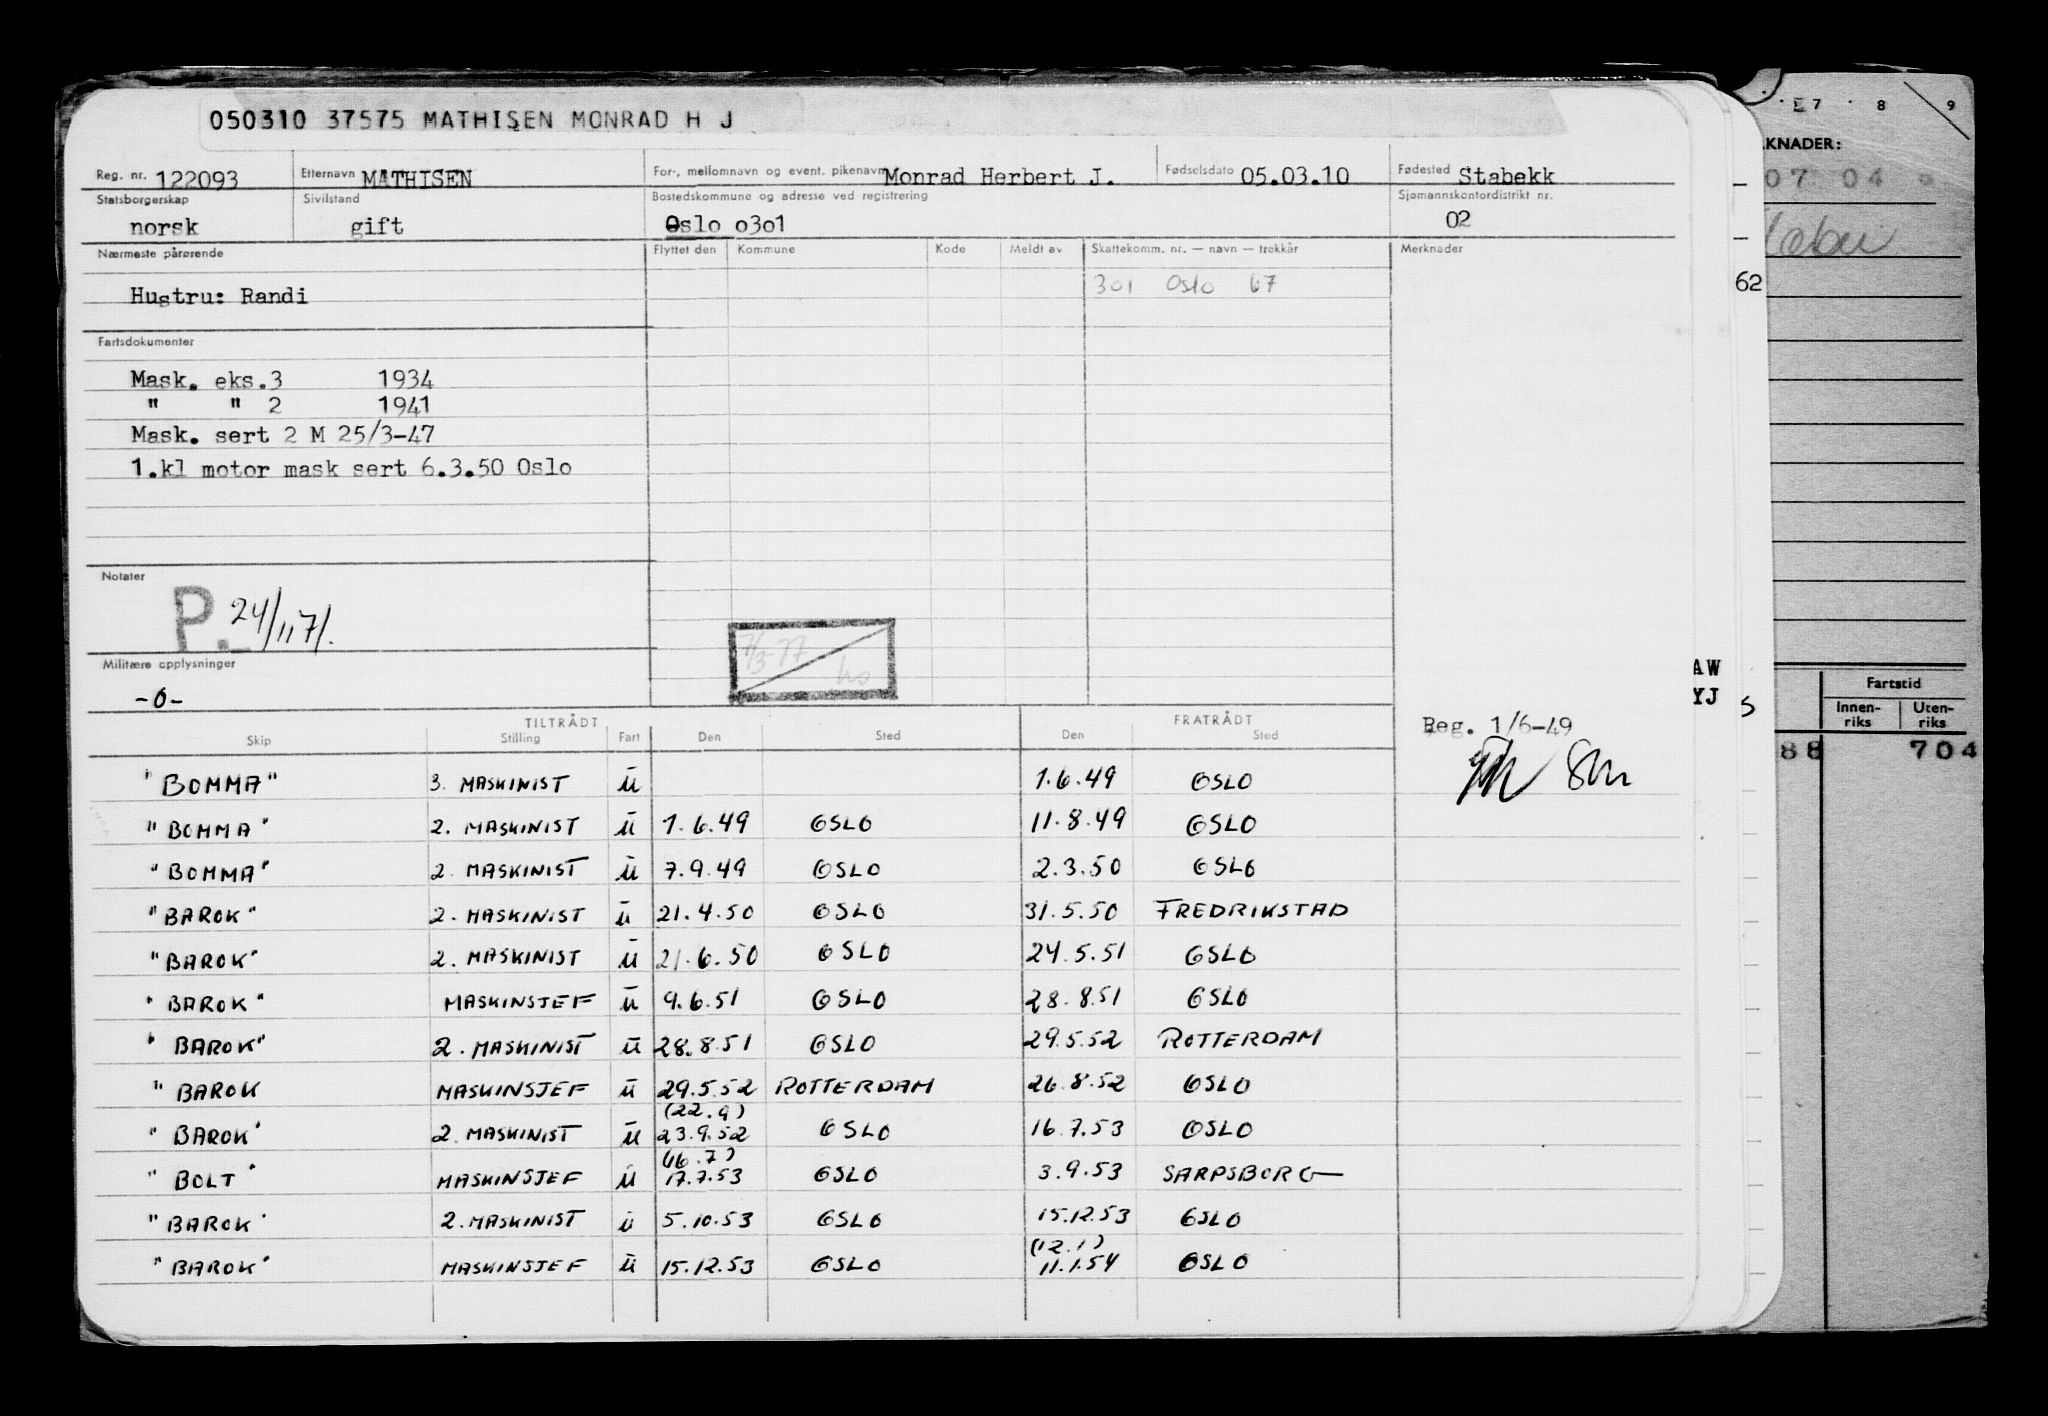 050310 37575 MATHISEN MONRAD H J
Reg. nr. 122093 Etternavn MATHISEN For-, mellomnavn og event. pikenavn Monrad Herbert J. Fødselsdato 05.03.10 Fødested Stabekk
Statsborgerskap Sivilstand Bostedskommune og adresse ved registrering Sjømannskontordistrikt nr.
norsk gift Oslo o3o1 02
Nærmeste pårørende Flyttet den Kommune Kode Meldt av Skattekomm. nr. — navn — trekkår Merknader
301 Oslo 67
Hustru: Randi
Fartsdokumenter
Mask. eks.3 1934
" " 2 1941
Mask. sert 2 M 25/3-47
1.kl motor mask sert 6.3.50 Oslo
Notater
P. 24/11 71.
7/3-77
Militære opplysninger
-0-
TILTRÅDT FRATRÅDT
Skip Stilling Fart Den Sted Den Sted
Reg. 1/6-49
"BOMMA" 3. MASKINIST U 1.6.49 OSLO
"BOMMA" 2. MASKINIST U 1.6.49 OSLO 11.8.49 OSLO
"BOMMA" 2. MASKINIST U 7.9.49 OSLO 2.3.50 OSLO
"BAROK" 2. MASKINIST U 21.4.50 OSLO 31.5.50 FREDRIKSTAD
"BAROK" 2. MASKINIST U 21.6.50 OSLO 24.5.51 OSLO
"BAROK" MASKINSJEF U 9.6.51 OSLO 28.8.51 OSLO
"BAROK" 2. MASKINIST U 28.8.51 OSLO 29.5.52 ROTTERDAM
"BAROK MASKINSJEF U 29.5.52 ROTTERDAM 26.8.52 OSLO
(22.9)
"BAROK" 2. MASKINIST U 23.9.52 OSLO 16.7.53 OSLO
(16.7)
"BOLT" MASKINSJEF U 17.7.53 OSLO 3.9.53 SARPSBORG
"BAROK" 2. MASKINIST U 5.10.53 OSLO 15.12.53 OSLO
(12.1)
"BAROK" MASKINSJEF U 15.12.53 OSLO 11.1.54 OSLO
7 8 9
KNADER:
07 04
62
AW
YJ
S
Fartstid
Innen-riks Uten-riks
88 704